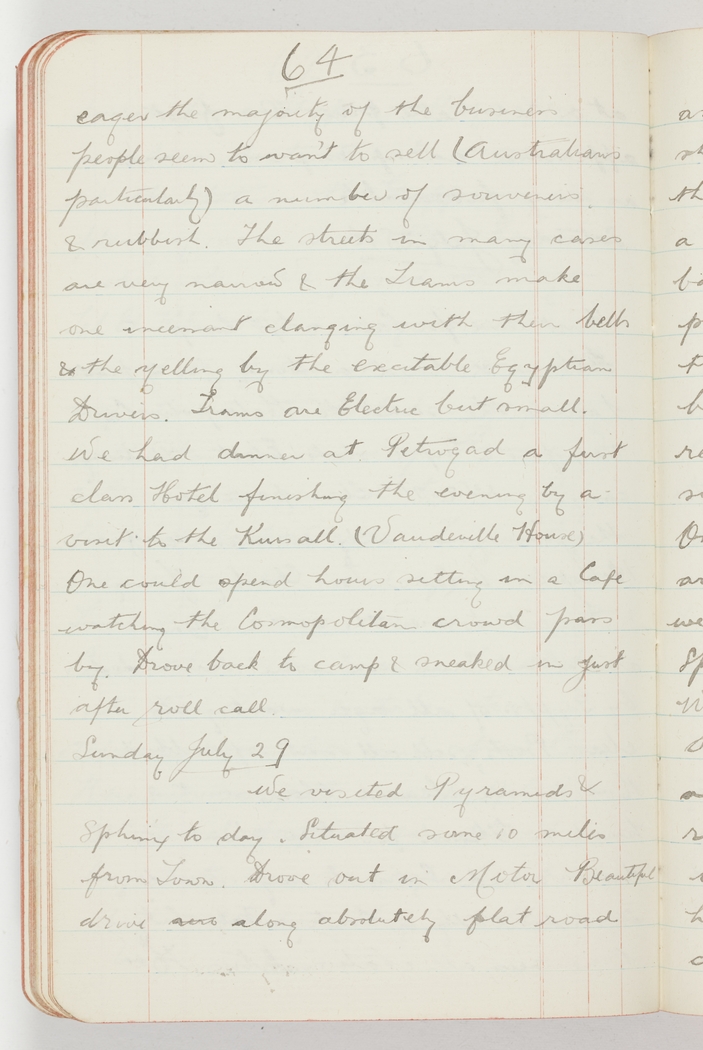 64
eager the majority of the business
people seem to want to sell (Australians
particularly) a number of souvenirs
& rubbish. The streets in many cases
are very narrow & the Trams make
one incessant clanging with their bells
& the yelling by the excitable Egyptian
Drivers. Trams are Electric but small.
We had dinner at Petrogad a first
class Hotel finishing the evening by a
visit to the Kursall. (Vaudeville House)
One could spend hours sitting in a Cafe
watching the Cosmopolitan crowd pass
by. Drove back to camp & sneaked in just
after roll call.
Sunday July 29
We visited Pyramids &
Sphinx to day. Situated some 10 miles
from Town. Drove out in Motor Beautiful
drive along absolutely flat road
a
st
th
a
ba
p
t
b
re
s
On
ar
we
Sp